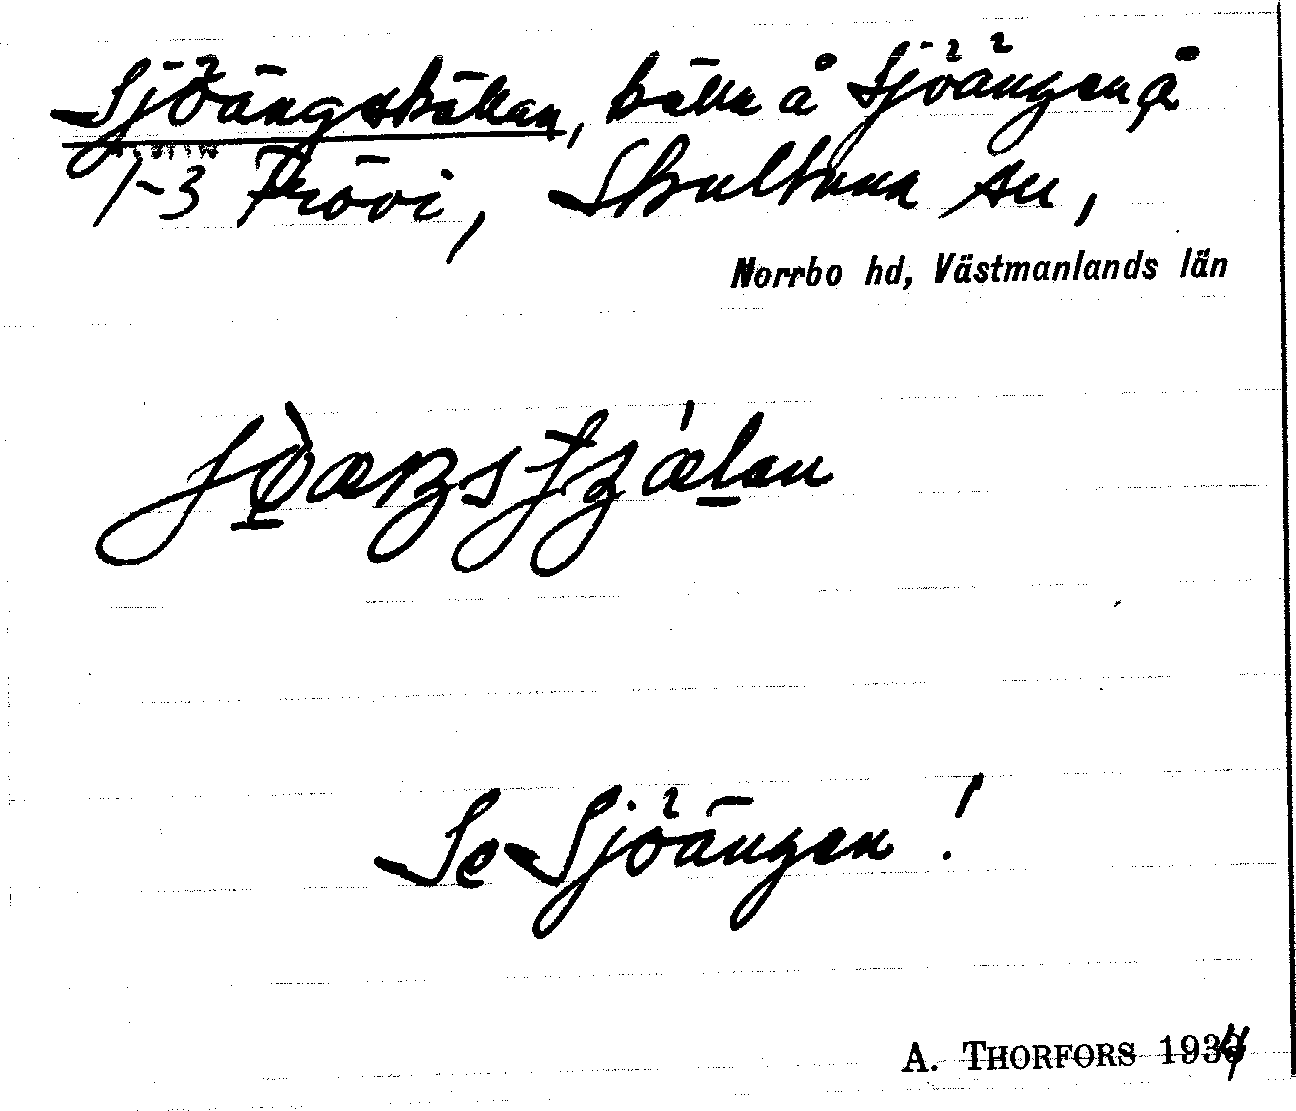 Sjöängskällan, källa å Sjöängen å
1-3 Frövi, Skultuna sn,
Norrbo hd, Västmanlands län
Se Sjöängen!
A. THORFORS 1934